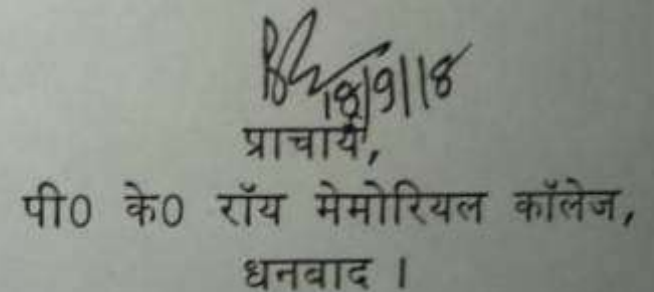 18/9/18
प्राचार्य,
पी0 के0 रॉय मेमोरियल कॉलेज,
धनबाद ।